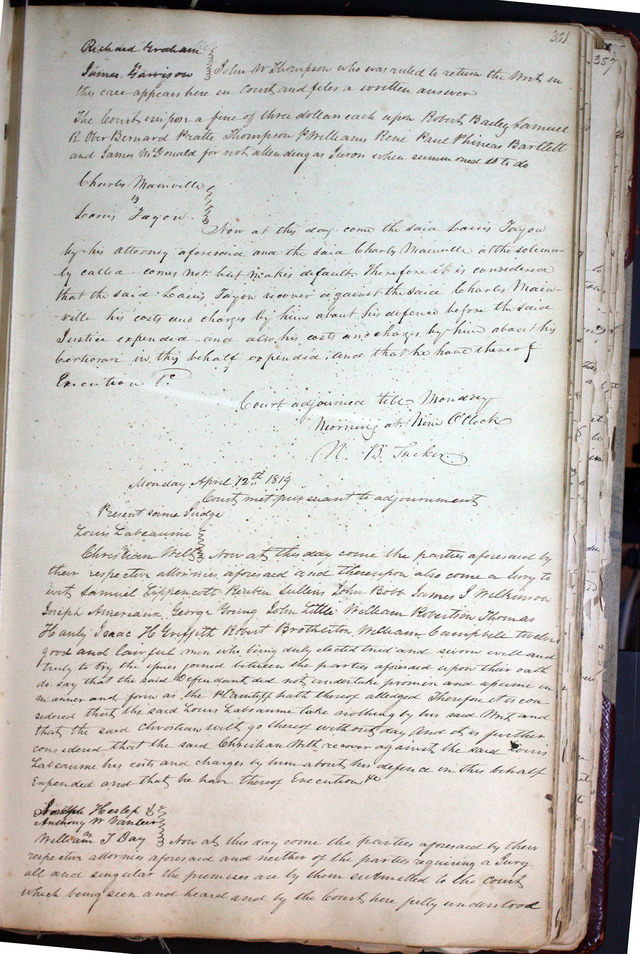 351
357
Richard Graham
vs
James Garrison } John W Thompson who was ruled to return the Writ in
this case appears here in court and files a written answer
The Court impose a fine of three dollars each upon Robert Bailey Samuel
R Ober Bernard Pratte Thompson P Williams Rene Paul Phineas Bartlett
and James McDonald for not attending as Jurors when summoned so to do
Charles Mainville
vs
Louis Tayon } Now at this day come the said Louis Tayon
by his attorney aforesaid and the said Charles Mainville altho solemn-
ly called comes not but makes default Therefore it is considered
that the said Louis Tayon recover against the said Charles Main-
-ville his costs and charges by him about his defence before the said
Justice expended and also his costs and charges by him about his
Certiorari in this behalf expended and that he have thereof
Execution &c
Court adjourned till Monday
Morning at Nine O'Clock
N. B. Tucker
Monday April 12th 1819
Court met pursuant to adjournment
Present same Judge
Louis Labeaume
vs
Christian Wilt } Now at this day come the parties aforesaid by
their respective attornies aforesaid and thereupon also come a Jury to
wit Samuel Lippencott Reuben Sullens John Robb James J Wilkinson
Joseph Ameriaux George Young John Little William Robertson Thomas
Hanly Isaac H Griffith Robert Brotherton William Campbell twelve
good and lawful men who being duly elected tried and sworn well and
truly to try the issues joined between the parties aforesaid upon their oath
do say that the said Defendant did not undertake promise and assume in
manner and form as the Plaintiff hath thereof alledged Therefore it is con
sidered that the said Louis Labeaume take nothing by his said Writ and
that the said Christian Wilt go thereof without day and it is further
considered that the said Christian Wilt recover against the said Louis
Labeaume his costs and charges by him about his defence in this behalf
Expended and that he have thereof Execution &c
Joseph Heslep &
Anthony W Vanleer
vs
William T Day } Now at this day come the parties aforesaid by their
respective attornies aforesaid and neither of the parties requiring a Jury
all and singular the premises are by them submitted to the court
which being seen and heard and by the Court here fully understood